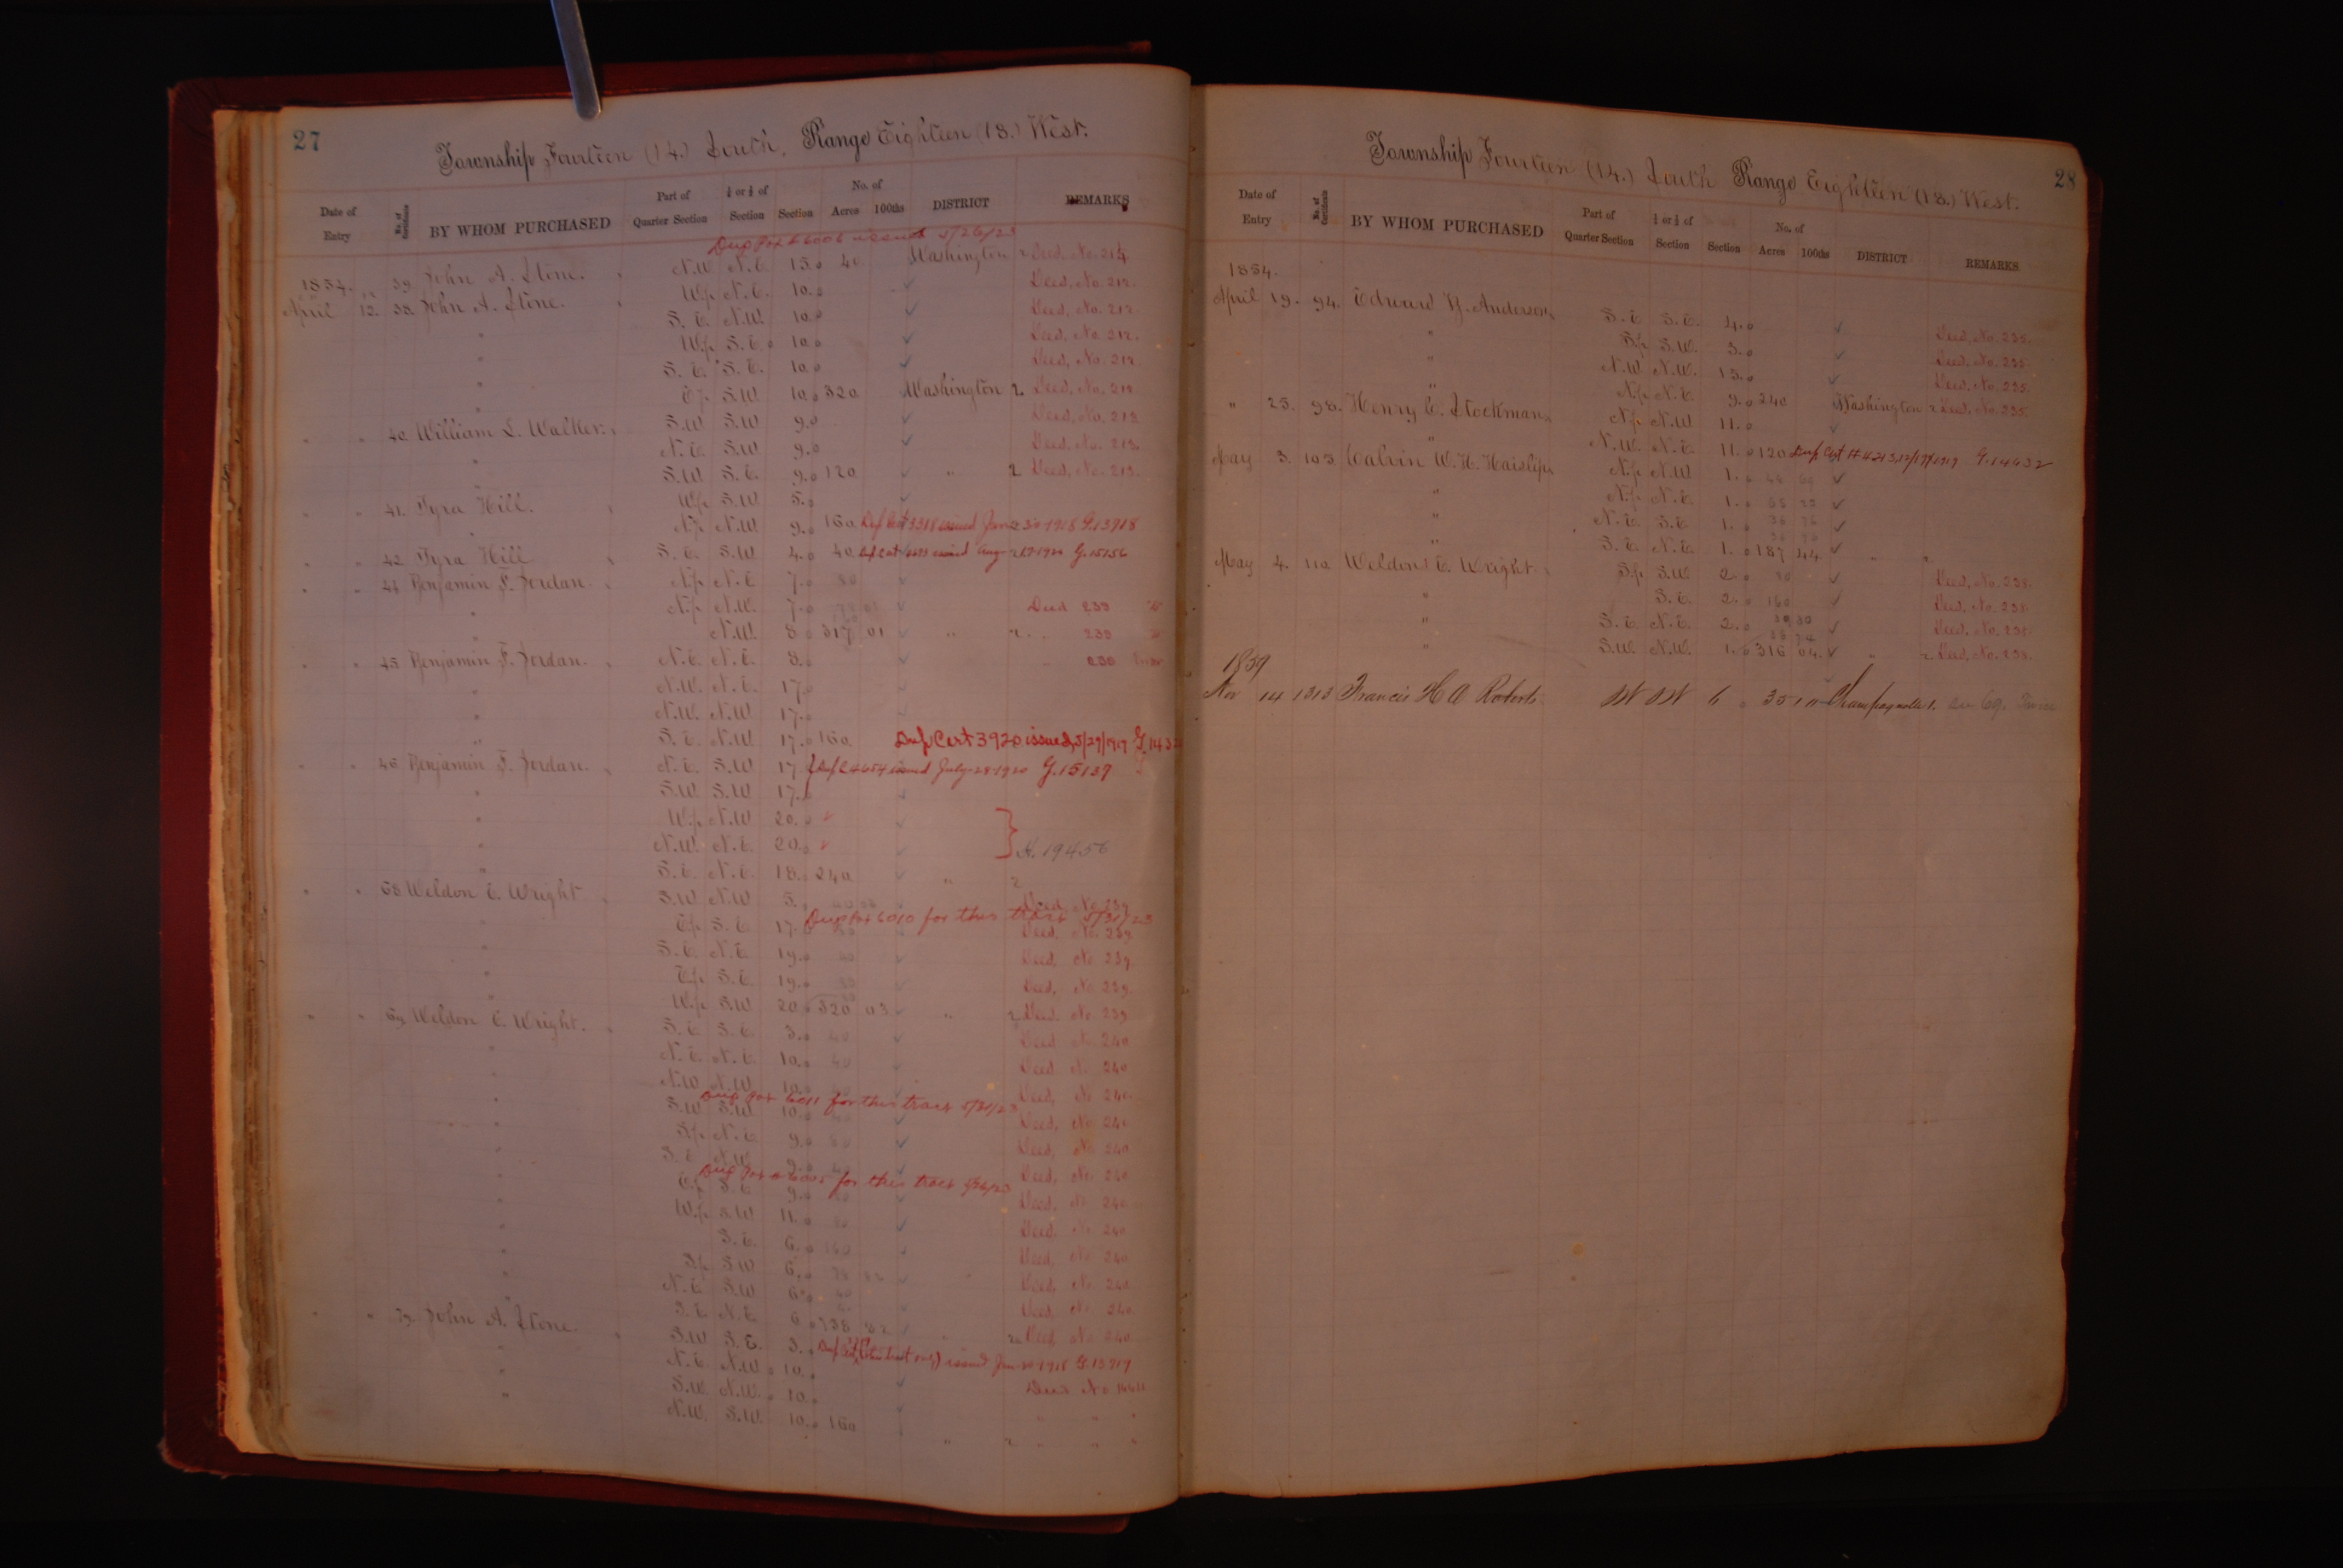 27
Township Fourteen (14.) South, Range Eighteen (18.) West.
Date of Entry No. of Certificate BY WHOM PURCHASED Part of Quarter Section ½ or ¼ of Section Section No. of Acres 100ths DISTRICT REMARKS
issued 5/26/23
1854. 39 John A. Stone. N.W. N.E. 15. 40 Washington 2 Deed, No. 214.
April 12. 38. John A. Stone. W½ N.E. 10. Deed, No. 212.
" S.E. N.W. 10. Deed, No. 212.
" W½ S.E. 10. Deed, No. 212.
" S.E. S.E. 10. Deed, No. 212.
" E½ S.W. 10. 320 Washington 2 Deed, No. 212.
" " 40 William L. Walker. S.W. S.W. 9. Deed, No. 213.
" N.E. S.W. 9. Deed, No. 213.
" S.W. S.E. 9. 120 " 2 Deed, No. 213.
" " 41. Tyra Hill. W½ S.W. 5.
" N½ N.W. 9. 160 issued Jan 1918 G.13918
" " 42 Tyra Hill S.E. S.W. 4. 40 issued Aug 1920 G.15156
" " 44 Benjamin F. Jordan. N½ N.E. 7. 80
" N½ N.W. 7. Deed 233
" N.W. 8 317 01 " 2 233
" " 45 Benjamin F. Jordan. N.E. N.E. 8. 230
" N.W. N.E. 17.
" N.W. N.W. 17.
" S.E. N.W. 17. 160 Dup Cert 3920 issued 5/29/1919
" " 46 Benjamin F. Jordan. N.E. S.W. 17. issued July 28 1920 G.15139
" S.W. S.W. 17.
" W½ N.W. 20.
" N.W. N.E. 20. 19456
" S.E. N.E. 18. 240 " 2
" " 68 Weldon E. Wright S.W. N.W. 5. Deed, No. 239
6010 for this tract 5/31/23
" E½ S.E. 17. 80 Deed, No. 239.
" S.E. N.E. 19. 40 Deed, No. 239.
" E½ S.E. 19. 80 Deed, No. 239.
" W½ S.W. 20. 320 03 " 2 Deed No. 239
" " 69 Weldon E. Wright. S.E. S.E. 3. 40 Deed No. 240
" N.E. N.E. 10. 40 Deed No. 240
" N.W. N.W. 10. Deed, No. 240.
6011 for this tract 5/31/23
" S.W. S.W. 10. Deed, No. 240
" S½ N.E. 9. 80 Deed, No. 240
" S.E. N.W. 9. Deed, No. 240
for this tract
" E½ S.E. 9. Deed, No. 240
" W½ S.W. 11. 80 Deed, No. 240
" S.E. 6. 160 Deed, No. 240
" S½ S.W. 6. Deed, No. 240
" N.E. S.W. 6. 40 Deed, No. 240
" S.E. N.E. 6 738 " 2 Deed, No. 240
" " 79 John A. Stone. S.W. S.E. 3. issued Jan 1918 G.13919
" N.E. N.W. 10. Deed No
" S.W. N.W. 10. " " "
" N.W. S.W. 10. 160 " 2 " " "
28
Township Fourteen (14.) South Range Eighteen (18.) West.
Date of Entry No. of Certificate BY WHOM PURCHASED Part of Quarter Section ½ or ¼ of Section Section No. of Acres 100ths DISTRICT REMARKS
1854.
April 19. 94. Edward H. Anderson. S.E. S.E. 4. Deed, No. 235.
" S½ S.W. 3. Deed, No. 235.
" N.W. N.W. 15. Deed, No. 235.
" N½ N.E. 9. 240 Washington 2 Deed, No. 235.
" 25. 98. Henry E. Stockman. N½ N.W. 11.
" N.W. N.E. 11. 120 G.14632
May 3. 103. Calvin W. H. Haislip N½ N.W. 1.
" N½ N.E. 1.
" N.E. S.E. 1.
" S.E. N.E. 1. 187 44 " "
May 4. 110 Weldon E. Wright S½ S.W. 2. 80 Deed, No. 238.
" S.E. 2. 160 Deed, No. 238
" S.E. N.E. 2. Deed, No. 238
" S.W. N.W. 1. 316 04. " 2 Deed, No. 238.
1859
Nov 14 1313 Francis H A Roberts SW SW 6 35 Champagnolle 1.